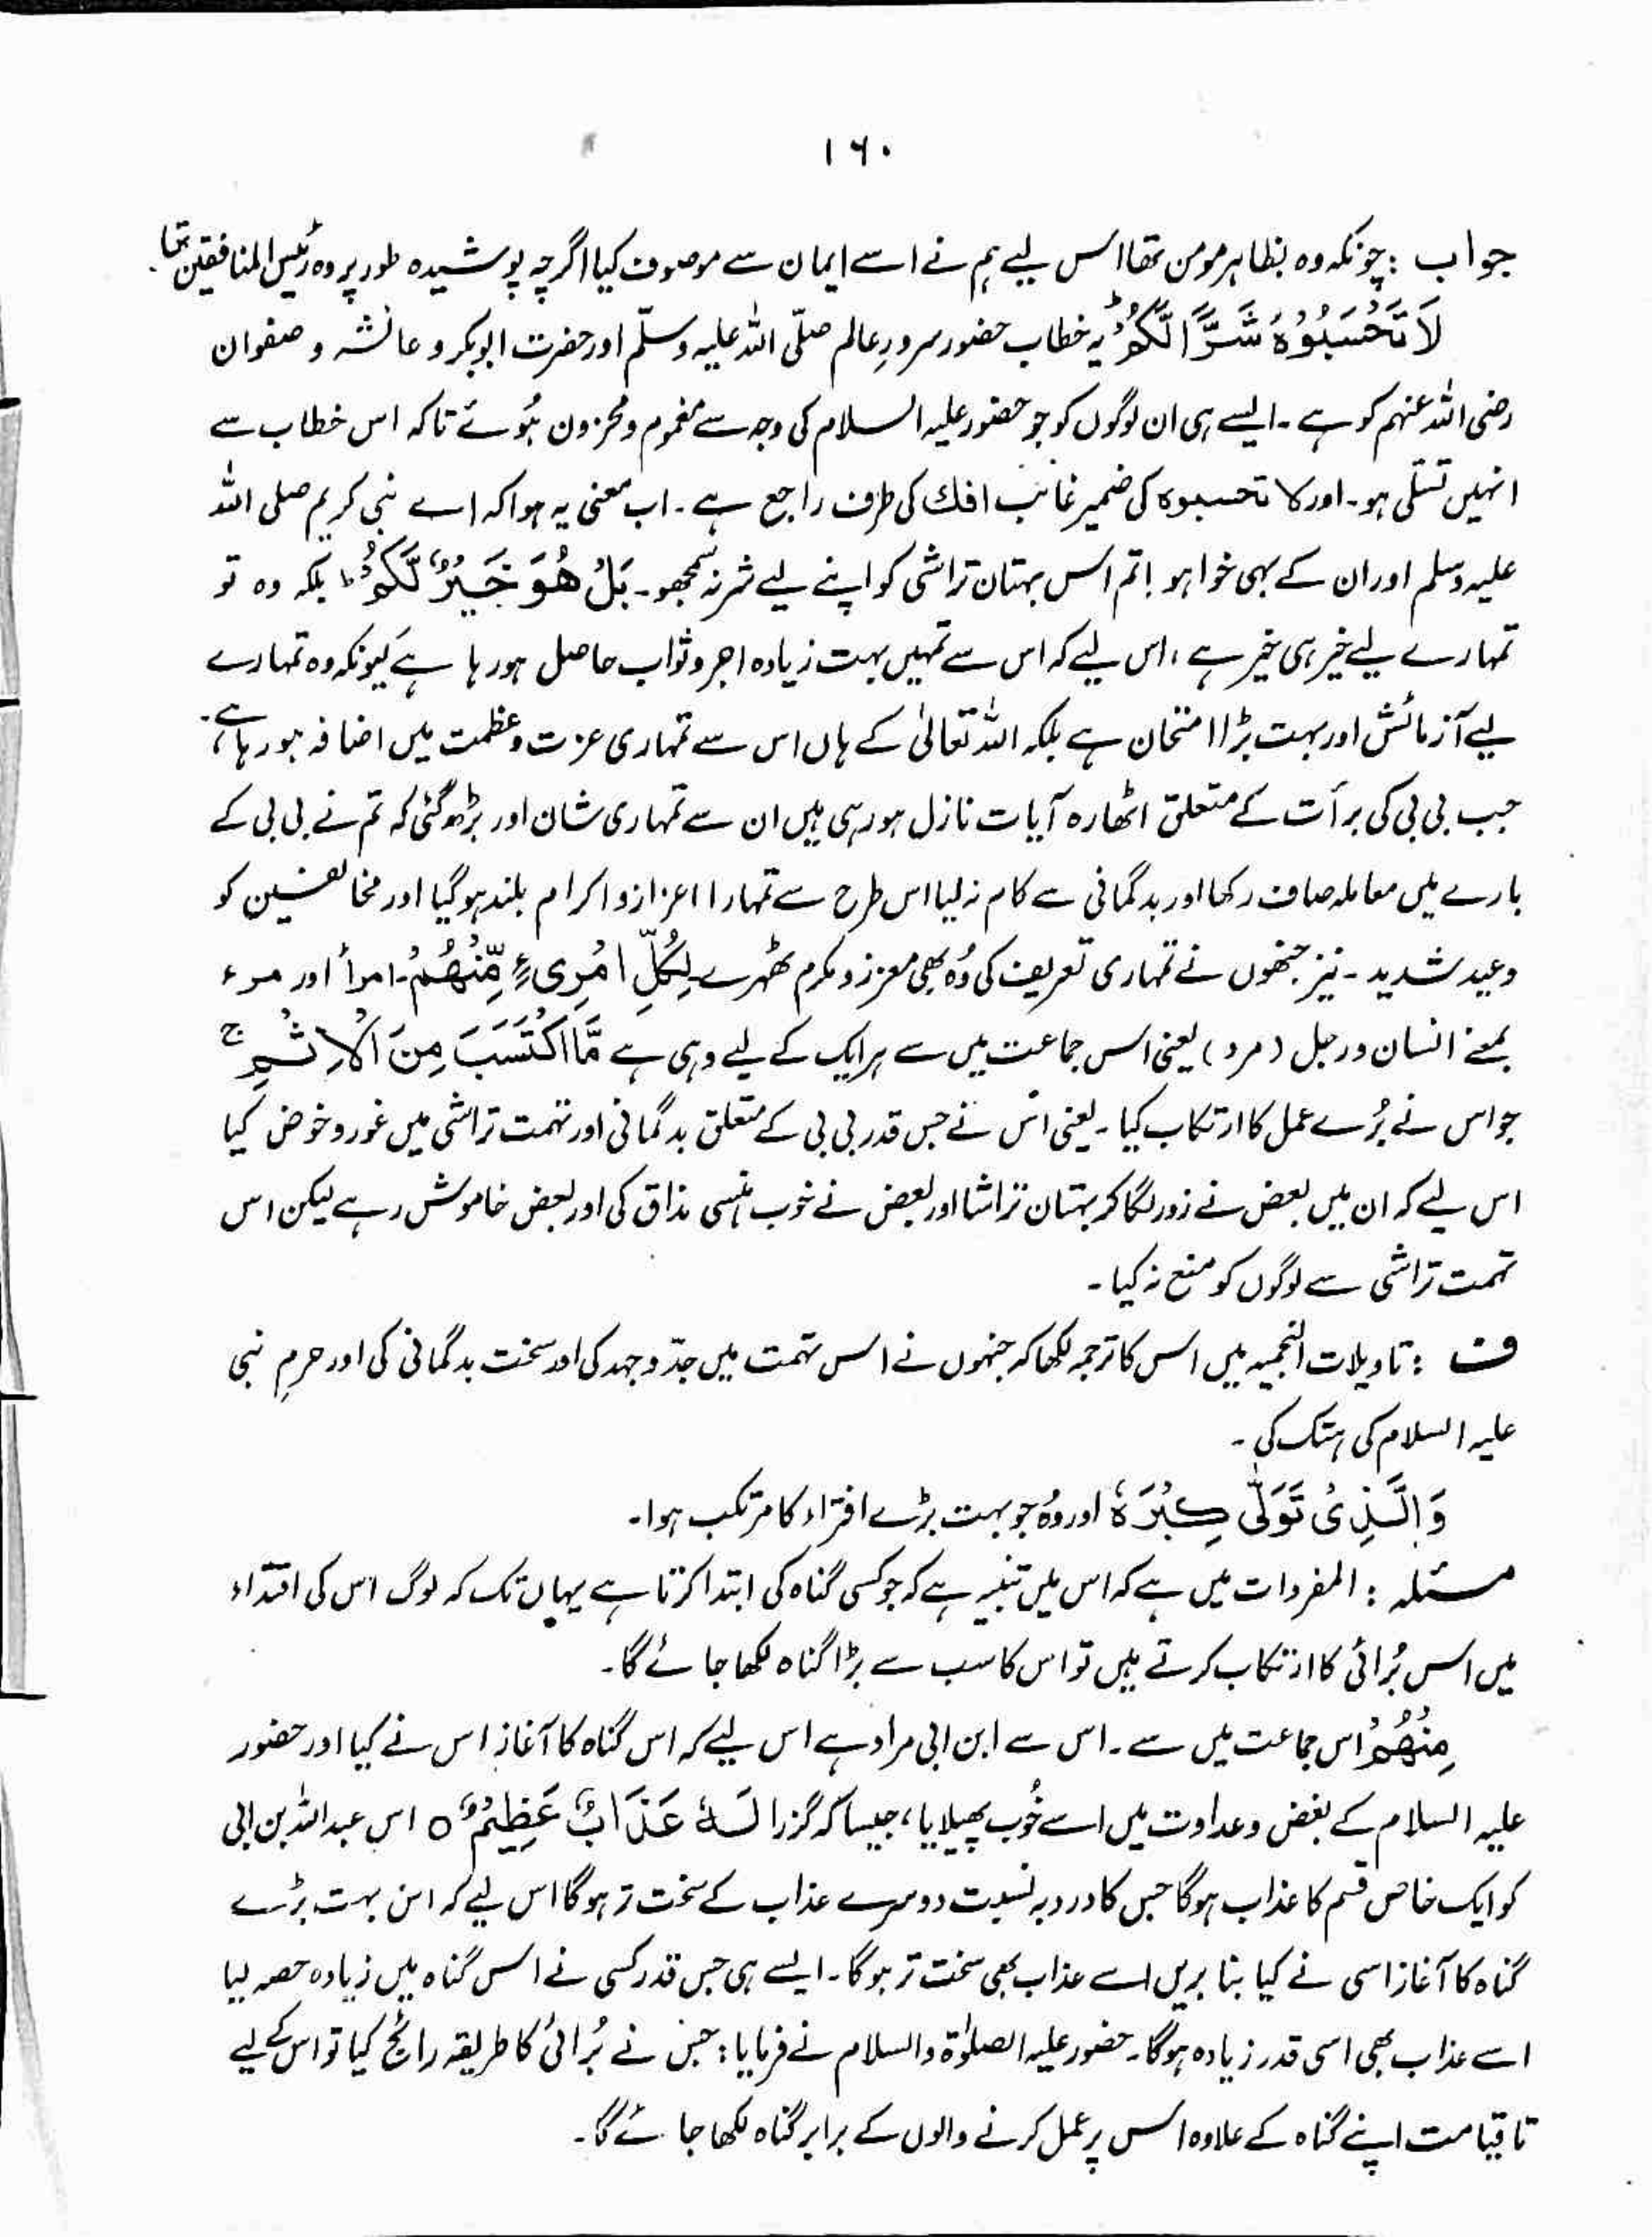 ۱۶۰
جواب : چونکہ وہ بظاہر مومن تھا اس لیے ہم نے اسے ایمان سے موصوف کیا اگرچہ پوشیدہ طور پر وہ رئیس المنافقین تھا۔
لَا تَحْسَبُوْهُ شَرًّا لَّكُمْ ؕ یہ خطاب حضور سرورِ عالم صلّی اللہ علیہ وسلّم اور حضرت ابوبکر و عائشہ و صفوان
رضی اللہ عنہم کو ہے ۔ ایسے ہی ان لوگوں کو جو حضور علیہ السلام کی وجہ سے مغموم و محزون ہُوئے تاکہ اس خطاب سے
انہیں تسلّی ہو ۔ اور لا تحسبوہ کی ضمیر غائب افك کی طرف راجع ہے ۔ اب معنی یہ ہوا کہ اے نبی کریم صلی اللہ
علیہ وسلم اور ان کے بہی خواہو ! تم اس بہتان تراشی کو اپنے لیے شر نہ سمجھو ۔ بَلْ هُوَ خَيْرٌ لَّكُمْ ؕ بلکہ وہ تو
تمہارے لیے خیر ہی خیر ہے ، اس لیے کہ اس سے تمہیں بہت زیادہ اجر و ثواب حاصل ہو رہا ہے کیونکہ وہ تمہارے
لیے آزمائش اور بہت بڑا امتحان ہے بلکہ اللہ تعالیٰ کے ہاں اس سے تمہاری عزت و عظمت میں اضافہ ہو رہا ہے ۔
جب بی بی کی برأت کے متعلق اٹھارہ آیات نازل ہو رہی ہیں ان سے تمہاری شان اور بڑھ گئی کہ تم نے بی بی کے
بارے میں معاملہ صاف رکھا اور بدگمانی سے کام نہ لیا اس طرح سے تمہارا اعزاز و اکرام بلند ہو گیا اور مخالفین کو
وعید شدید ۔ نیز جنھوں نے تمہاری تعریف کی وُہ بھی معزز و مکرم ٹھہرے لِكُلِّ امْرِیءٍ مِّنْهُمْ ۔ امرأ اور مرء
بمعنے انسان و رجل ( مرد ) یعنی اس جماعت میں سے ہر ایک کے لیے وہی ہے مَّا اكْتَسَبَ مِنَ الْاِثْمِ ۚ
جو اس نے بُرے عمل کا ارتکاب کیا ۔ یعنی اس نے جس قدر بی بی کے متعلق بدگمانی اور تہمت تراشی میں غور و خوض کیا
اس لیے کہ ان میں بعض نے زور لگا کر بہتان تراشا اور بعض نے خوب ہنسی مذاق کی اور بعض خاموش رہے لیکن اس
تہمت تراشی سے لوگوں کو منع نہ کیا ۔
ف : تاویلات النجمیہ میں اس کا ترجمہ لکھا کہ جنہوں نے اس تہمت میں جدّ و جہد کی اور سخت بدگمانی کی اور حرمِ نبی
علیہ السلام کی ہتک کی ۔
وَالَّذِیْ تَوَلّٰی كِبْرَهٗ اور وُہ جو بہت بڑے افتراء کا مرتکب ہوا ۔
مسئلہ : المفردات میں ہے کہ اس میں تنبیہ ہے کہ جو کسی گناہ کی ابتدا کرتا ہے یہاں تک کہ لوگ اس کی اقتداء
میں اس بُرائی کا ارتکاب کرتے ہیں تو اس کا سب سے بڑا گناہ لکھا جائے گا ۔
مِنْهُمْ اس جماعت میں سے ۔ اس سے ابن ابی مراد ہے اس لیے کہ اس گناہ کا آغاز اس نے کیا اور حضور
علیہ السلام کے بغض و عداوت میں اسے خُوب پھیلایا ، جیسا کہ گزرا لَهٗ عَذَابٌ عَظِيْمٌ ○ اس عبداللہ بن ابی
کو ایک خاص قسم کا عذاب ہوگا جس کا درد بہ نسبت دوسرے عذاب کے سخت تر ہوگا اس لیے کہ اس بہت بڑے
گناہ کا آغاز اسی نے کیا بنا بریں اسے عذاب بھی سخت تر ہوگا ۔ ایسے ہی جس قدر کسی نے اس گناہ میں زیادہ حصہ لیا
اسے عذاب بھی اسی قدر زیادہ ہوگا ۔ حضور علیہ الصلوٰۃ والسلام نے فرمایا : جس نے بُرائی کا طریقہ رائج کیا تو اس کے لیے
تا قیامت اپنے گناہ کے علاوہ اس پر عمل کرنے والوں کے برابر گناہ لکھا جائے گا ۔